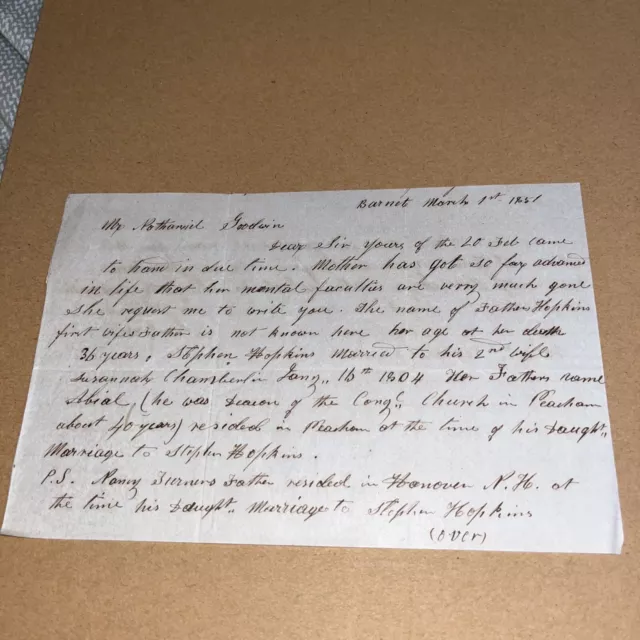 Barnet March 1st 1851
Mr Nathaniel Goodwin
Dear Sir Yours of the 20 Feb came
to hand in due time. Mother has got so far advanced
in life that her mental faculties are very much gone
She request me to write you. The name of Father Hopkins
first wifes Father is not known here her age at her death
36 years, Stephen Hopkins Married to his 2nd wife
Susannah Chamberlin Jany,, 16th 1804 Her Fathers name
Abial, (he was Deacon of the Congl Church in Peacham
about 40 years) resided in Peacham at the time of his Daught,,
Marriage to Stephen Hopkins.
P.S. Nancy Turners Father resided in Hanover N.H. at
the time his Daught,, Marriage to Stephen Hopkins
(over)